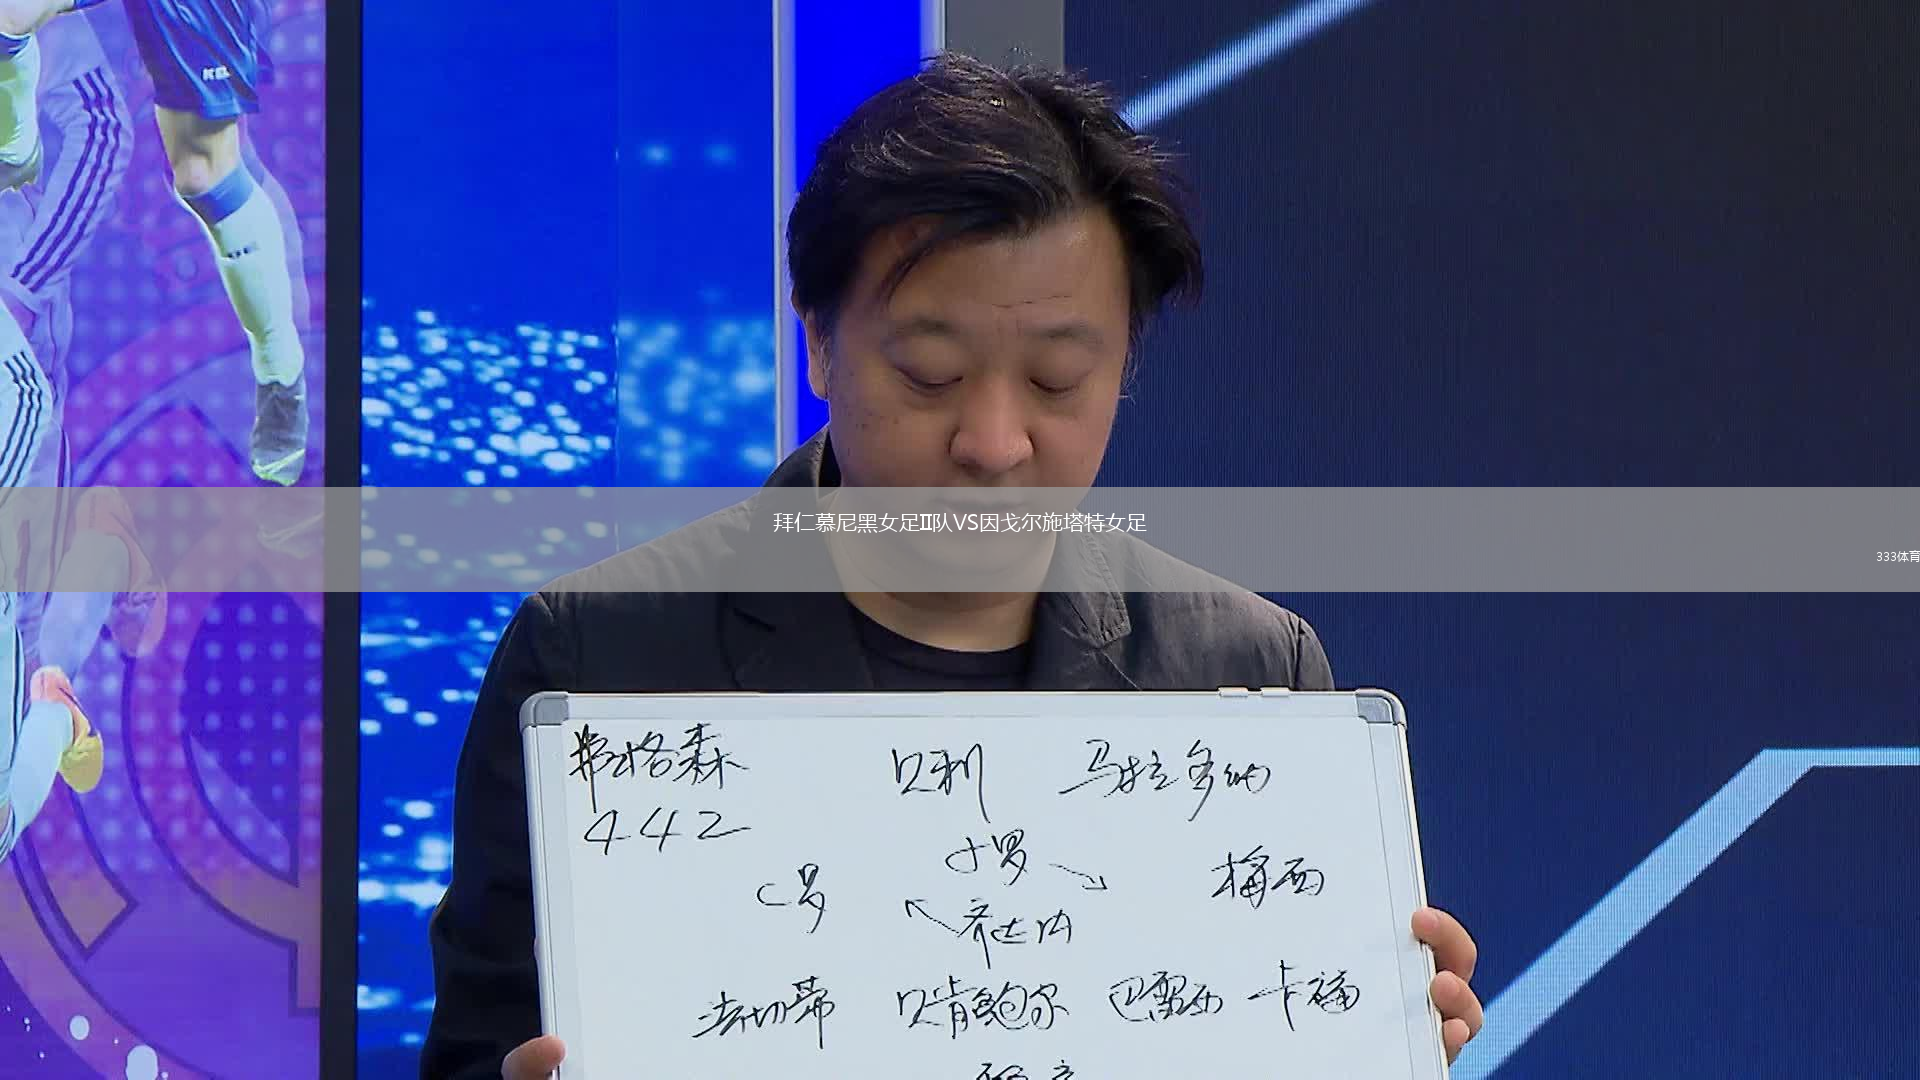 KELME
拜仁慕尼黑女足II队VS因戈尔施塔特女足
333体育
弗格森 贝利 马拉多纳
442
小罗
C罗 梅西
齐达内
法切蒂 贝肯鲍尔 巴雷西 卡福